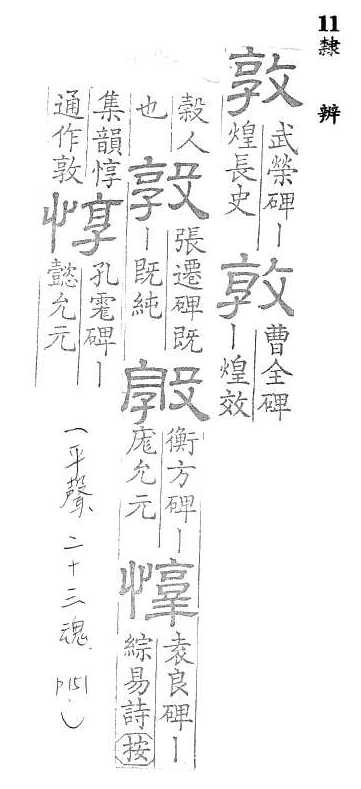 11 隸辨
敦武榮碑丨煌長史敦曹全碑丨煌效
穀人也敦張遷碑既丨既純敦衡方碑丨庬允元惇袁良碑丨綜易詩按
集韻惇通作敦惇孔彪碑丨懿允元
(一平聲、二十三魂、P151)